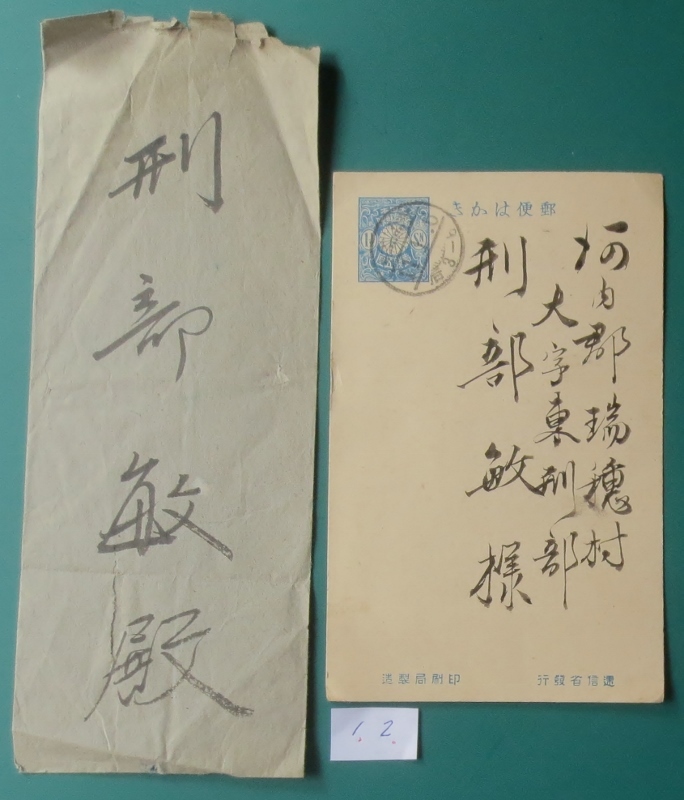 刑部敏殿
郵便はかき
河内郡瑞穗村
大字東刑部
刑部敏様
遞信省發行
印刷局製造
1. 2.